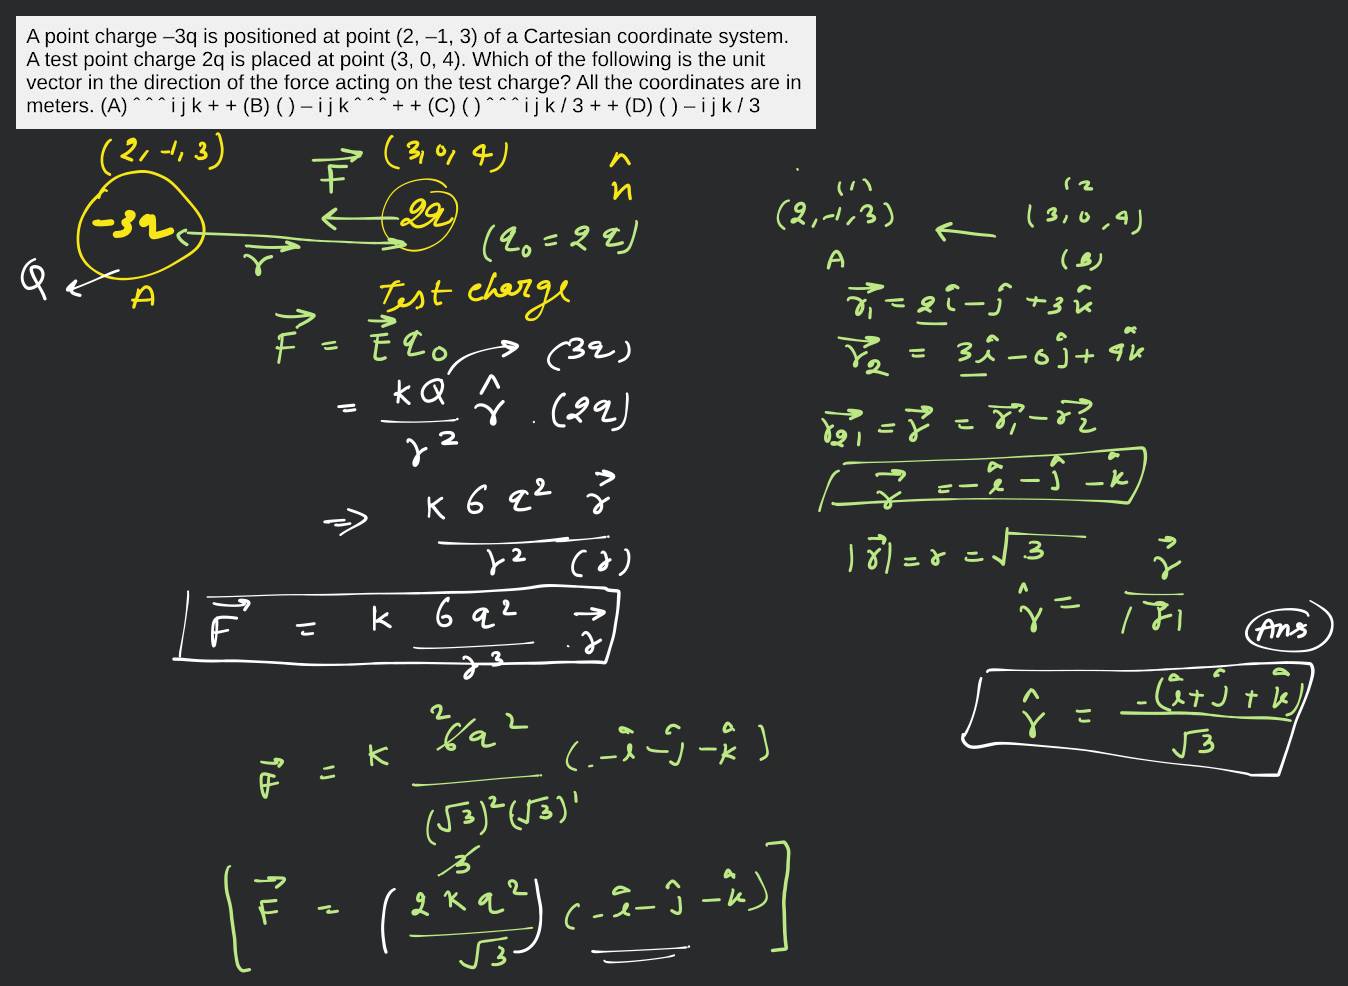 A point charge –3q is positioned at point (2, –1, 3) of a Cartesian coordinate system.
A test point charge 2q is placed at point (3, 0, 4). Which of the following is the unit
vector in the direction of the force acting on the test charge? All the coordinates are in
meters. (A) ˆ ˆ ˆ i j k + + (B) ( ) – i j k ˆ ˆ ˆ + + (C) ( ) ˆ ˆ ˆ i j k / 3 + + (D) ( ) – i j k / 3
(2, -1, 3)
F⃗
(3, 0, 4)
n̂
-3q
2q
(q₀ = 2q)
r⃗
Q
A
Test charge
F⃗ = E⃗ q₀
(3q)
= kQ/r² r̂ . (2q)
⇒ K 6 q² r⃗ / r² (r)
F⃗ = K 6q²/r³ . r⃗
F⃗ = K 6q²/(√3)²(√3)¹ (-î - ĵ - k̂)
2
3
[F⃗ = (2Kq²/√3) (-î - ĵ - k̂)]
(1)
(2
(2, -1, 3)
(3, 0, 4)
A
(B)
r₁⃗ = 2î - ĵ + 3k̂
r₂⃗ = 3î - 0ĵ + 4k̂
r₂₁⃗ = r⃗ = r₁⃗ - r₂⃗
r⃗ = -î - ĵ - k̂
|r⃗| = r = √3
r̂ = r⃗/|r⃗|
Ans
r̂ = -(î + ĵ + k̂)/√3